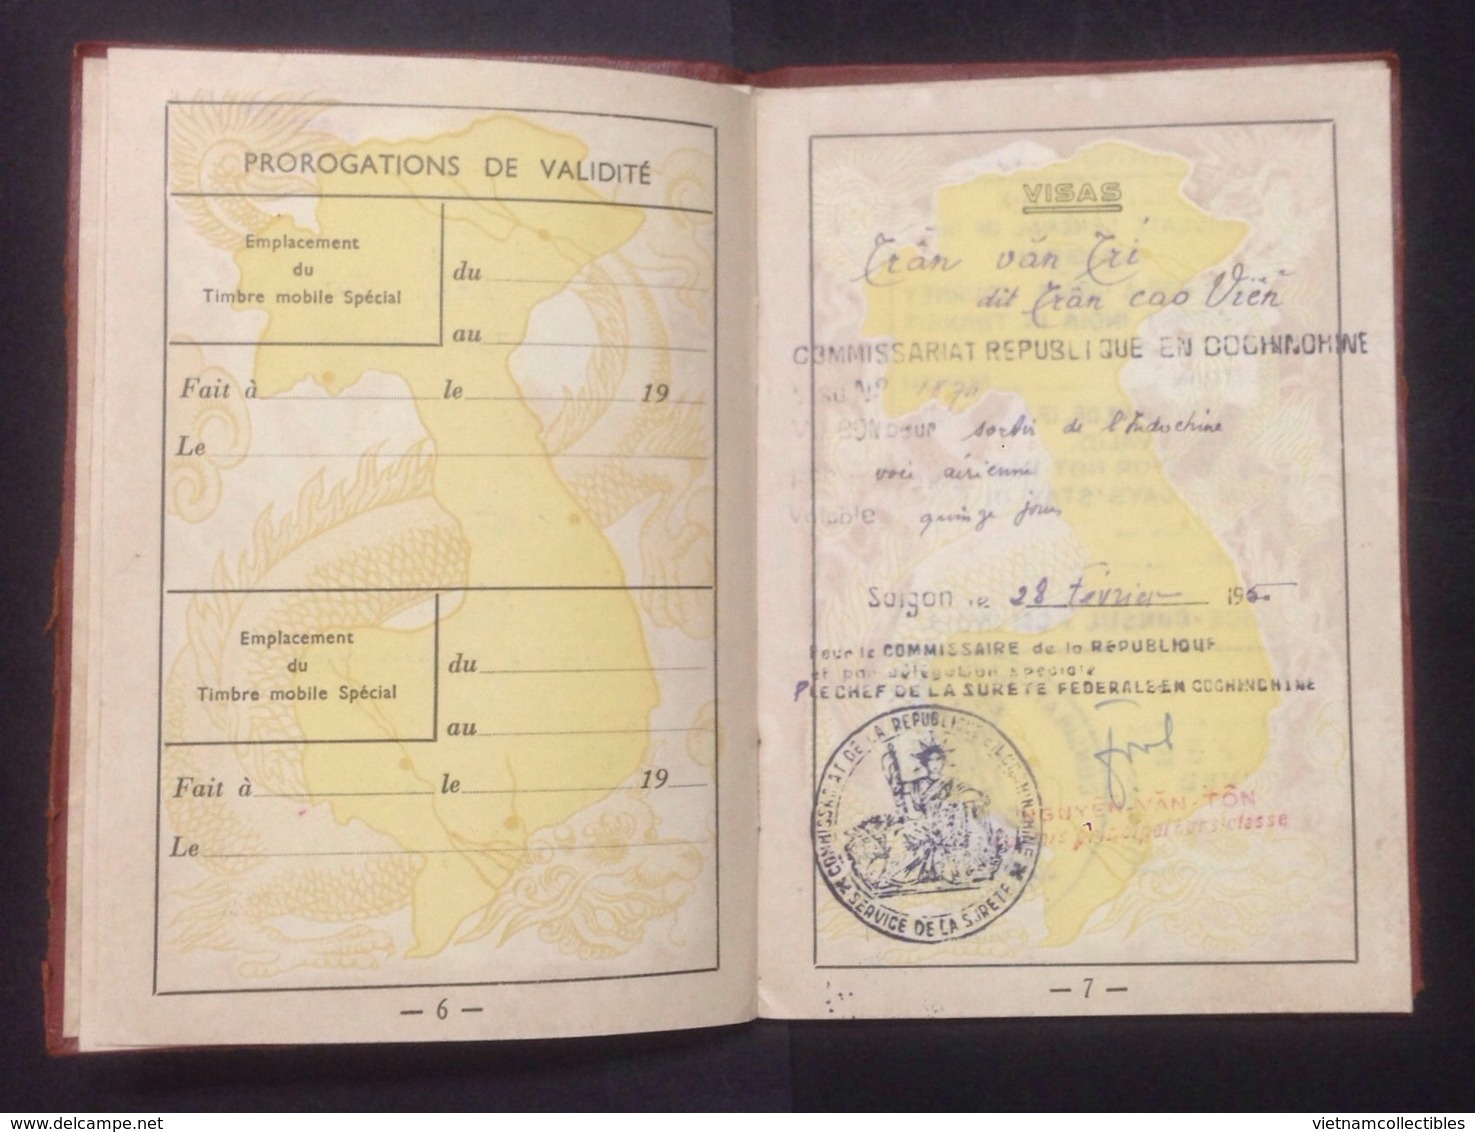 PROROGATIONS DE VALIDITÉ
Emplacement
du
Timbre mobile Spécial
du
au
Fait à le 19
Le
Emplacement
du
Timbre mobile Spécial
du
au
Fait à le 19
Le
— 6 —
VISAS
Trần văn Tri
dit Trần cao Viễn
COMMISSARIAT REPUBLIQUE EN COCHINCHINE
Visa Nº
BON pour sortir de l'Indochine
voie aérienne
Valable quinze jours
Saigon le 28 Février 1950
Pour le COMMISSAIRE de la REPUBLIQUE
et par délégation spéciale
P LE CHEF DE LA SURETE FEDERALE EN COCHINCHINE
COMMISSARIAT DE LA REPUBLIQUE EN COCHINCHINE
SERVICE DE LA SURETE
NGUYỄN-VĂN-TÔN
Commis principal hors classe
— 7 —
delcampe.net
vietnamcollectibles